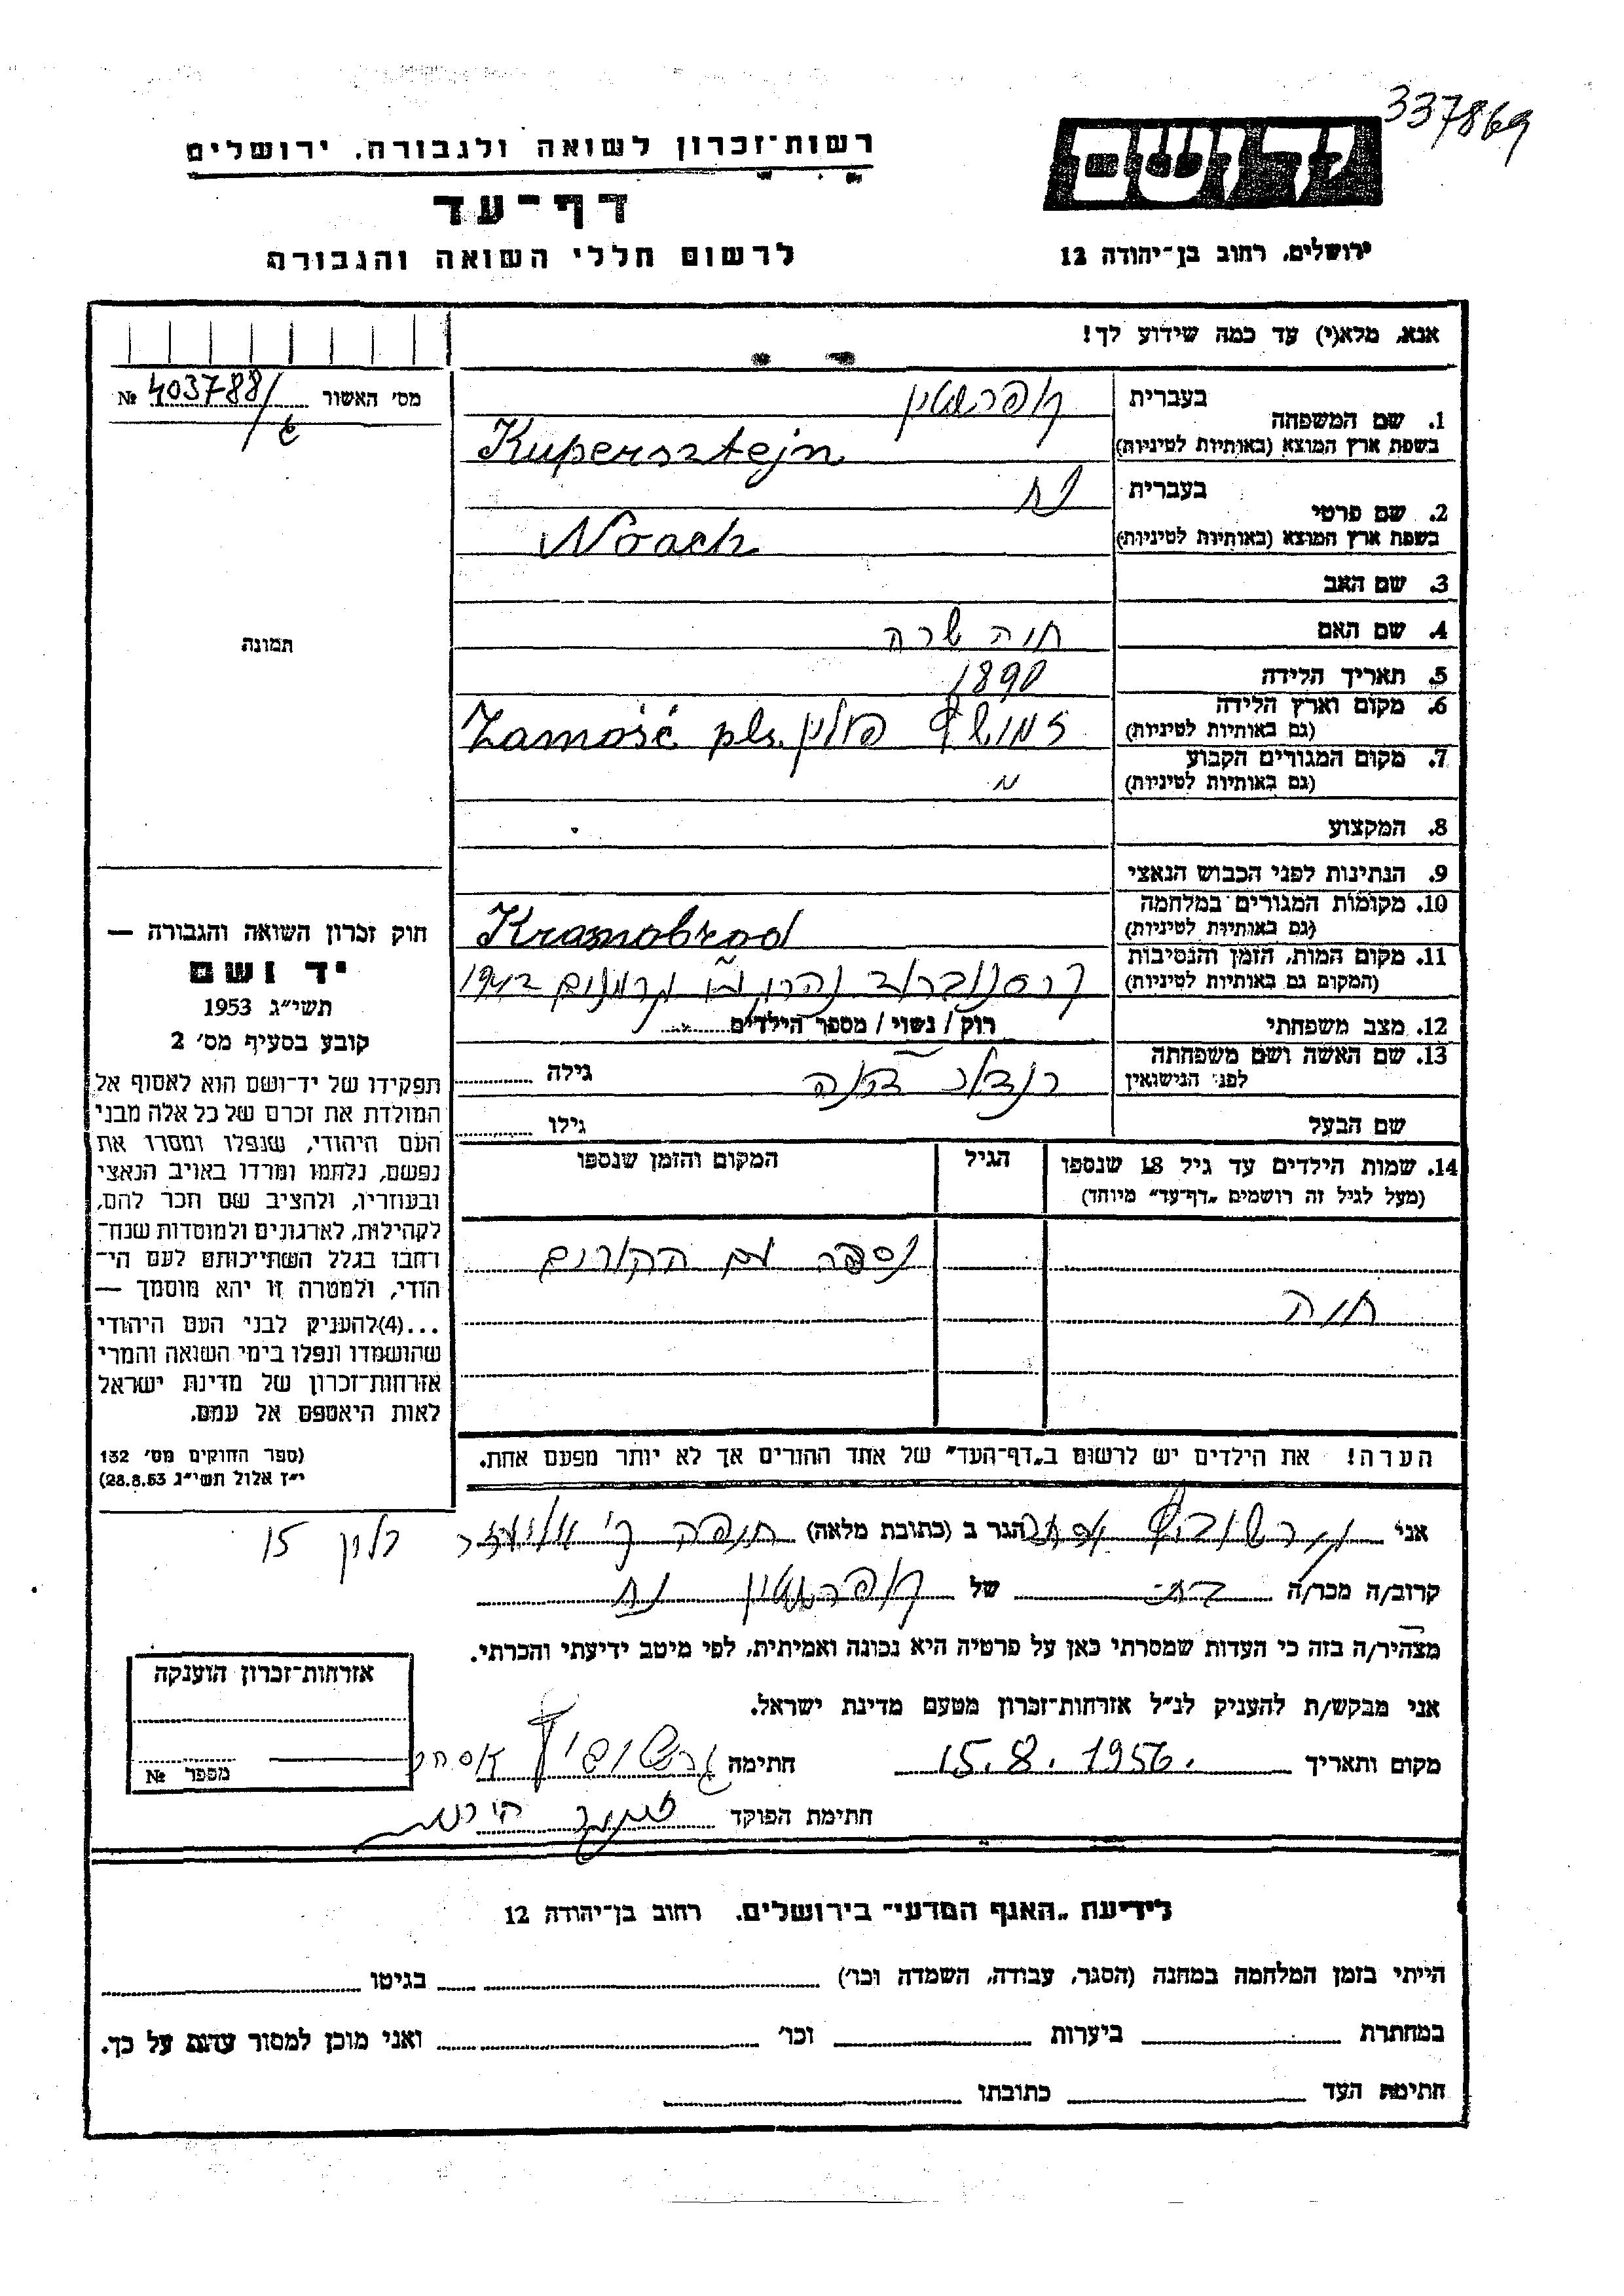 337869
רשות־זכרון לשואה ולגבורה. ירושלים
דף־עד
לרשום חללי השואה והגבורה
ירושלים, רחוב בן־יהודה 12
אנא, מלא(י) עד כמה שידוע לך!
מס׳ האשור № 403788/
1. שם המשפחה
בעברית קופרשטין
בשפת ארץ המוצא (באותיות לטיניות) Kupersztejn
2. שם פרטי
בעברית נח
בשפת ארץ המוצא (באותיות לטיניות) Noach
3. שם האב
4. שם האם חוה שרה
5. תאריך הלידה 1890
6. מקום וארץ הלידה
(גם באותיות לטיניות) זמושץ פולין Zamość
7. מקום המגורים הקבוע
(גם באותיות לטיניות) "
8. המקצוע
9. הנתינות לפני הכבוש הנאצי
10. מקומות המגורים במלחמה
(גם באותיות לטיניות)
11. מקום המות, הזמן והנסיבות
(המקום גם באותיות לטיניות) קרסנוברוד נהרק ע"י גרמנים 1942
12. מצב משפחתי רוק / נשוי / מספר הילדים
13. שם האשה ושם משפחתה
לפני הנישואין גילה
שם הבעל גילו
14. שמות הילדים עד גיל 18 שנספו
(מעל לגיל זה רושמים „דף־עד״ מיוחד)
הגיל
המקום והזמן שנספו
נספה עם ההורים
חוה
הערה! את הילדים יש לרשום ב„דף־העד״ של אחד ההורים אך לא יותר מפעם אחת.
תמונה
חוק זכרון השואה והגבורה —
יד ושם
תשי״ג 1953
קובע בסעיף מס׳ 2
תפקידו של יד־ושם הוא לאסוף אל
המולדת את זכרם של כל אלה מבני
העם היהודי, שנפלו ומסרו את
נפשם, נלחמו ומרדו באויב הנאצי
ובעוזריו, ולהציב שם וזכר להם,
לקהילות, לארגונים ולמוסדות שנח־
רבו בגלל השתייכותם לעם הי־
הודי, ולמטרה זו יהא מוסמך —
...(4)להעניק לבני העם היהודי
שהושמדו ונפלו בימי השואה והמרי
אזרחות־זכרון של מדינת ישראל
לאות היאספם אל עמם.
(ספר החוקים מס׳ 132
י״ז אלול תשי״ג 28.8.53)
אני הגר ב (כתובת מלאה) חיפה 15
קרוב/ה מכר/ה בת של קופרשטין נח
מצהיר/ה בזה כי העדות שמסרתי כאן על פרטיה היא נכונה ואמיתית, לפי מיטב ידיעתי והכרתי.
אני מבקש/ת להעניק לנ״ל אזרחות־זכרון מטעם מדינת ישראל.
מקום ותאריך 15.8.1956. חתימה
חתימת הפוקד
אזרחות־זכרון הוענקה
מספר №
לידיעת „האגף המדעי״ בירושלים. רחוב בן־יהודה 12
הייתי בזמן המלחמה במחנה (הסגר, עבודה, השמדה וכו׳) בגיטו
במחתרת ביערות וכו׳ ואני מוכן למסור עדות על כך.
חתימת העד כתובתו